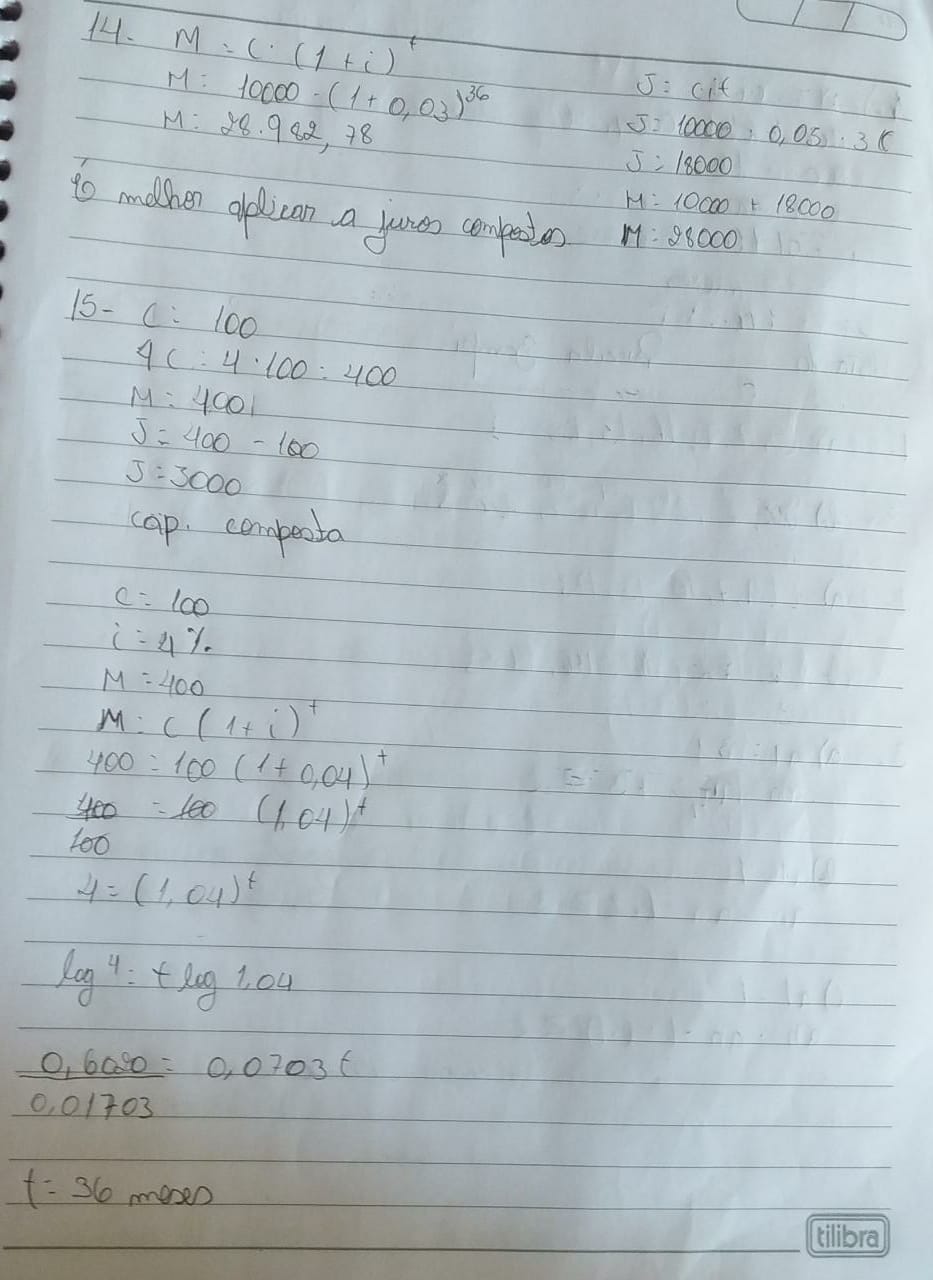 14. M = C. (1 + i)^t
M = 10000 . (1 + 0,03)^36
M = 28.982,78
É melhor aplicar a juros compostos
J = cit
J = 10000 . 0,05 . 36
J = 18000
M = 10000 + 18000
M = 28000
15- C = 100
4C = 4 . 100 = 400
M = 400
J = 400 - 100
J = 3000
cap. composta
C = 100
i = 4%.
M = 400
M = C (1 + i)^t
400 = 100 (1 + 0,04)^t
400 = 100 (1,04)^t
100
4 = (1,04)^t
log 4 = t log 1,04
0,6020 = 0,0703 t
0,01703
t = 36 meses
tilibra